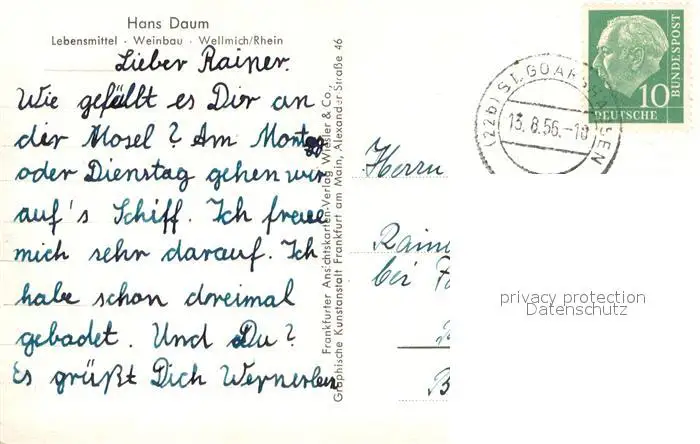 Hans Daum
Lebensmittel · Weinbau · Wellmich/Rhein
Lieber Rainer.
Wie gefällt es Dir an
der Mosel? Am Montag
oder Dienstag gehen wir
auf's Schiff. Ich freue
mich sehr darauf. Ich
habe schon dreimal
gebadet. Und Du?
Es grüßt Dich
Frankfurter Ansichtskarten-Verlag Wiesler & Co.,
Graphische Kunstanstalt Frankfurt am Main, Alexander-Straße 46
(22b) ST. GOARSHAUSEN
13.8.56.-10
10
DEUTSCHE
BUNDESPOST
Herrn
Raine
bei
B
privacy protection
Datenschutz